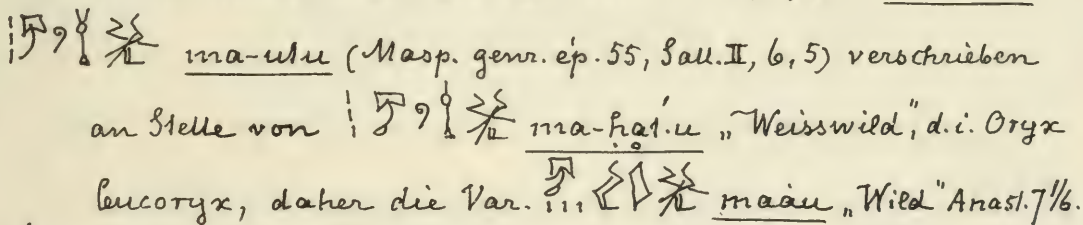 ma-utu (Masp. genr. ép. 55, Sall. II, 6, 5) verschrieben
an Stelle von ma-ḥaṭ.u „Weisswild", d. i. Oryx
leucoryx, daher die Var. maàu „Wild" Anast. 7 1/6.